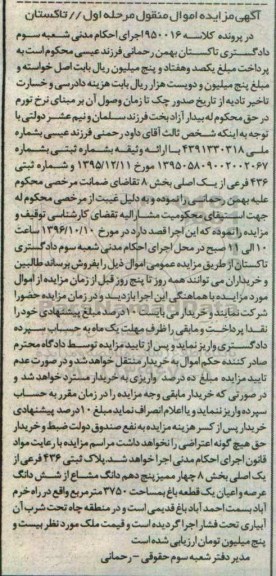 آگهی مزایده اموال منقول مرحله اول // تاکستان
در پرونده کلاسه ۹۵۰۰۱۶ اجرای احکام مدنی شعبه سوم
دادگستری تاکستان بهمن رحمانی فرزند عیسی محکوم است به
پرداخت مبلغ یکصد وهفتاد و پنج میلیون ریال بابت اصل خواسته و
مبلغ پنج میلیون و دویست هزار ریال بابت هزینه دادرسی و خسارت
تاخیر تادیه از تاریخ صدور چک تا زمان وصول آن بر مبنای نرخ تورم
در حق محکوم له بیدار آزادبخت فرزند سلمان و نیم عشر دولتی با
توجه به اینکه شخص ثالث آقای داود رحمنی فرزند عیسی بشماره
ملی ۴۳۹۱۳۳۰۳۱۸ با ارائه وثیقه به شماره ثبتی بشماره
۱۳۹۵۰۵۸۰۹۰۰۲۰۰۲۰۶۷ مورخ ۱۳۹۵/۱۲/۱۱ و شماره ثبتی
۴۳۶ فرعی از یک اصلی بخش ۸ تقاضای ضمانت مرخصی محکوم
علیه بهمن رحمانی را نموده و به دلیل غیبت از مرخصی محکوم له
جهت استیفای محکومیت مشارالیه تقضای کارشناسی توقیف و
مزایده را نموده که این اجرا قصد دارد در مورخ ۱۳۹۶/۱۰/۱۰ ساعت
۱۰ الی ۱۱ صبح در محل اجرای احکام مدنی شعبه سوم دادگستری
تاکستان از طریق مزایده عمومی اموال ذیل را بفروش برساند طالبین
و خریداران می توانند همه روز تا پنج روز قبل از زمان مزایده از اموال
مورد مزایده با هماهنگی این اجرا بازدید و در زمان مزایده حضورا
شرکت نمایند و خریدار می بایست ۱۰ درصد مبلغ پیشنهادی خود را
نقدا پرداخت و مابقی را ظرف مهلت یک ماه به حساب سپرده
دادگستری واریز نماید و پس از تایید مزایده توسط دادگاه محترم
صادر کننده حکم اموال به خریدار منتقل خواهد شد و در صورت عدم
تایید مزایده مبلغ ده درصد واریزی به خریدار مسترد خواهد شد و
در صورتی که خریدار مابقی وجه مزایده را در زمان مقرر به حساب
سپرده واریز ننماید و یا اعلام انصراف نماید مبلغ ۱۰ درصد پیشنهادی
خریدار پس از کسر هزینه مزایده به نفع صندوق دولت ضبط و خریدار
حق هیچ گونه اعتراضی را نخواهد داشت مراسم مزایده با رعایت مواد
قانون اجرای احکام مدنی اجرا خواهد شد. پلاک ثبتی ۴۳۶ فرعی از
یک اصلی بخش ۸ چهار ممیز پنج دهم دانگ مشاع از شش دانگ
عرصه و اعیان یک قطعه باغ بمساحت ۳۷۵۰ متر مربع واقع در راه خرم
آباد بسمت احمد آباد باغ قدیمی است و در منطقه چاه تحت شرب آن
آبیاری تحت فشار اجرا گردیده است و قیمت ملک مورد نظر بیست و
پنج میلیون تومان ارزیابی شده است
مدیر دفتر شعبه سوم حقوقی - رحمانی